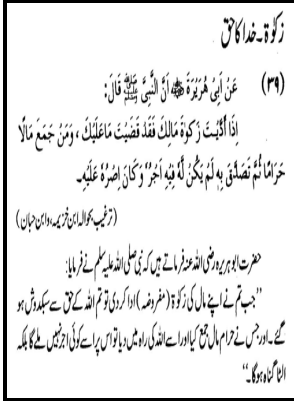 زکوٰۃ۔خدا کا حق
(۳۹) عَنْ اَبِیْ هُرَيْرَةَ ؓ اَنَّ النَّبِیَّ ﷺ قَالَ:
اِذَا اَدَّيْتَ زَكٰوةَ مَالِكَ فَقَدْ قَضَيْتَ مَاعَلَيْكَ ، وَمَنْ جَمَعَ مَالًا
حَرَامًا ثُمَّ تَصَدَّقَ بِهٖ لَمْ يَكُنْ لَّهٗ فِيْهِ اَجْرٌ وَّكَانَ اِصْرُهٗ عَلَيْهِ۔
(ترغیب بحوالہ ابن خزیمہ، وابن حبان)
حضرت ابوہریرہ رضی اللہ عنہ فرماتے ہیں کہ نبی صلی اللہ علیہ سلم نے فرمایا:
”جب تم نے اپنے مال کی زکوٰۃ (مفروضہ) ادا کر دی تو تم اللہ کے حق سے سبکدوش ہو
گئے۔اور جس نے حرام مال جمع کیا اور اسے اللہ کی راہ میں دیا تو اس پر اسے کوئی اجر نہیں ملے گا بلکہ
الٹا گناہ ہوگا۔“